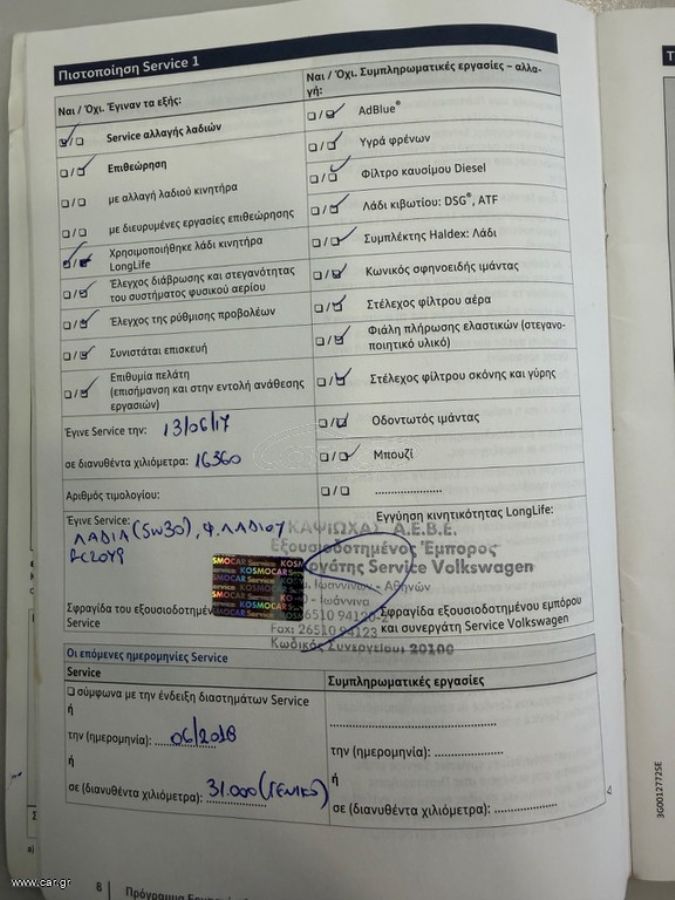 Πιστοποίηση Service 1
Ναι / Όχι. Έγιναν τα εξής:
Service αλλαγής λαδιών
Επιθεώρηση
με αλλαγή λαδιού κινητήρα
με διευρυμένες εργασίες επιθεώρησης
Χρησιμοποιήθηκε λάδι κινητήρα
LongLife
Έλεγχος διάβρωσης και στεγανότητας
του συστήματος φυσικού αερίου
Έλεγχος της ρύθμισης προβολέων
Συνιστάται επισκευή
Επιθυμία πελάτη
(επισήμανση και στην εντολή ανάθεσης
εργασιών)
Έγινε Service την: 13/06/17
σε διανυθέντα χιλιόμετρα: 16360
Αριθμός τιμολογίου:
Έγινε Service:
ΛΑΔΙΑ (5W30), Φ. ΛΑΔΙΟΥ
Σφραγίδα του εξουσιοδοτημέν
Service
Ναι / Όχι. Συμπληρωματικές εργασίες – αλλα-
γή:
AdBlue®
Υγρά φρένων
Φίλτρο καυσίμου Diesel
Λάδι κιβωτίου: DSG®, ATF
Συμπλέκτης Haldex: Λάδι
Κωνικός σφηνοειδής ιμάντας
Στέλεχος φίλτρου αέρα
Φιάλη πλήρωσης ελαστικών (στεγανο-
ποιητικό υλικό)
Στέλεχος φίλτρου σκόνης και γύρης
Οδοντωτός ιμάντας
Μπουζί
Εγγύηση κινητικότητας LongLife:
ΚΑΨΙΩΧΑΣ Α.Ε.Β.Ε.
Εξουσιοδοτημένος Έμπορος
Service Volkswagen
Ιωαννίνων - Αθηνών
Ιωάννινα
26510 94120-2
Fax: 26510 94123
Κωδικός Συνεργείου 20100
SMOCAR Service KOSM
Service KOSMOCAR
Σφραγίδα εξουσιοδοτημένου εμπόρου
και συνεργάτη Service Volkswagen
Οι επόμενες ημερομηνίες Service
Service
σύμφωνα με την ένδειξη διαστημάτων Service
ή
την (ημερομηνία): 06/2018
ή
σε (διανυθέντα χιλιόμετρα): 31.000 (ΓΕΝΙΚΟ)
Συμπληρωματικές εργασίες
την (ημερομηνία):
ή
σε (διανυθέντα χιλιόμετρα):
3G0012772SE
www.car.gr
8
Πρόγραμμα